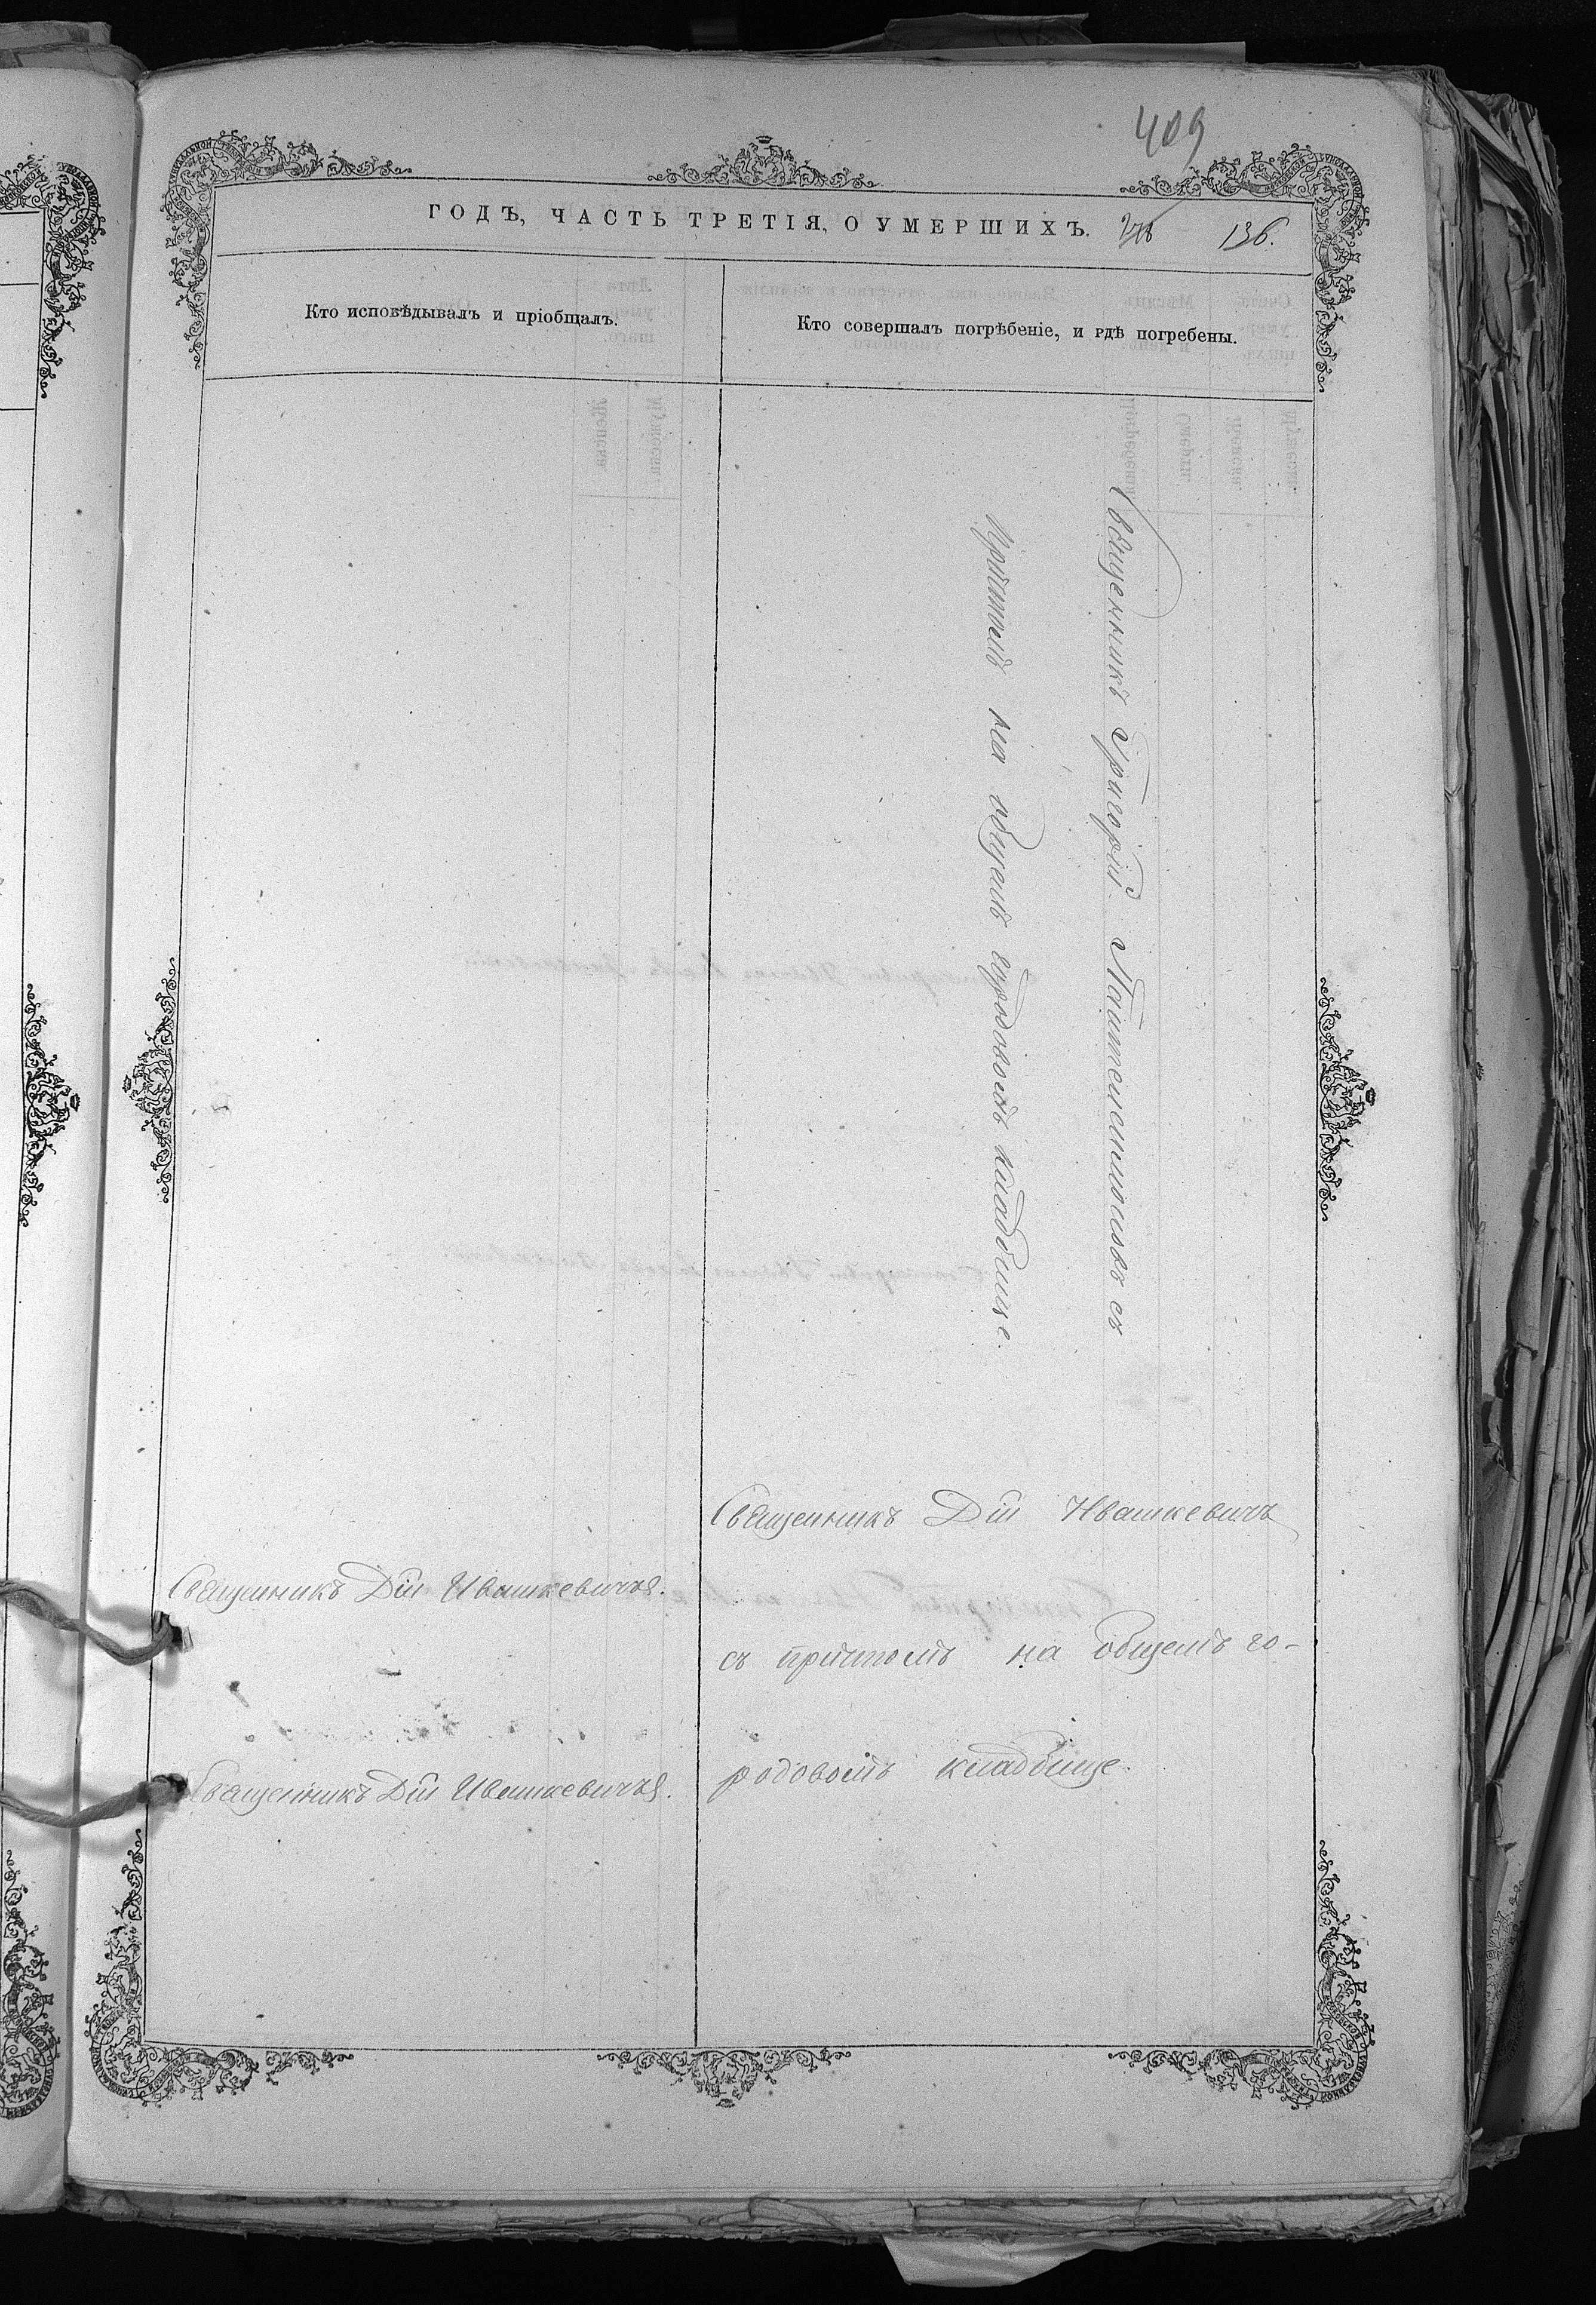 409
ГОДЪ, ЧАСТЬ ТРЕТІЯ, О УМЕРШИХЪ. 136.
Кто исповѣдывалъ и пріобщалъ.
Кто совершалъ погрѣбеніе, и гдѣ погребены.
Священникъ Григорій съ
Причтомъ на общемъ городовомъ кладбище.
Священникъ Дій Ивашкевичъ
съ причтомъ на общемъ го-
родовомъ кладбище.
Священникъ Дій Ивашкевичъ.
Священникъ Дій Ивашкевичъ.